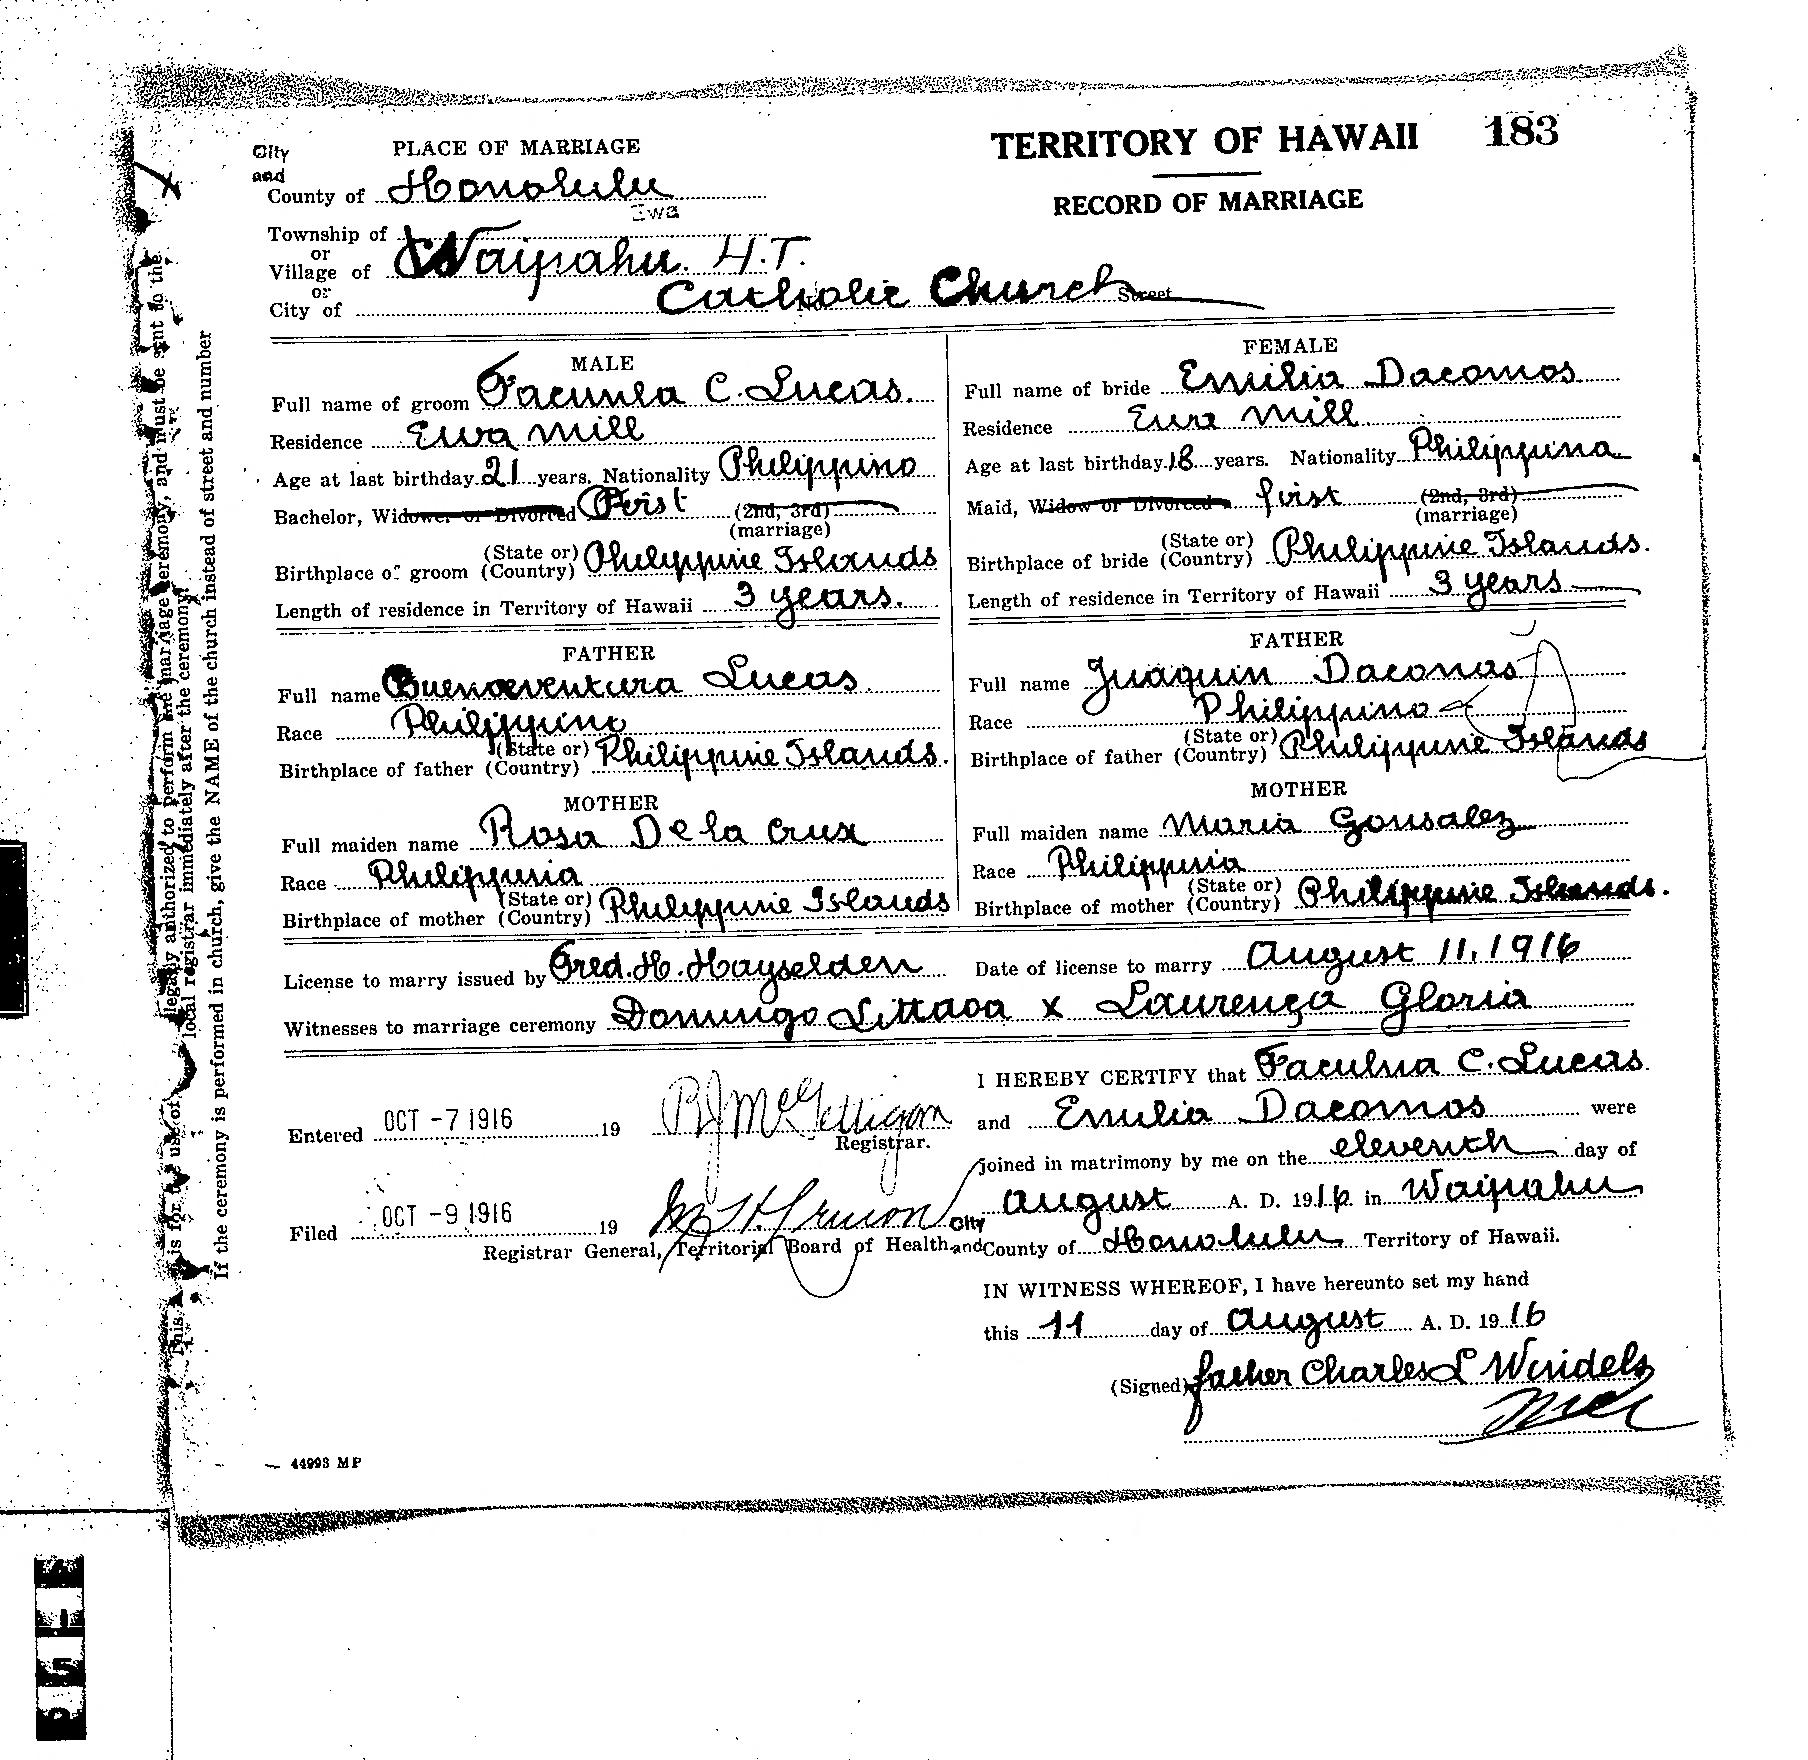 TERRITORY OF HAWAII 183
RECORD OF MARRIAGE
PLACE OF MARRIAGE
City
and
County of Honolulu
Ewa
Township of
or
Village of Waipahu. H.T.
or
City of Catholic Church Street
MALE
Full name of groom Facunla C. Lucas.
Residence Ewa Mill
Age at last birthday 21 years. Nationality Philippino
Bachelor, Widower or Divorced First (2nd, 3rd)
(marriage)
Birthplace of groom (State or) (Country) Philippine Islands
Length of residence in Territory of Hawaii 3 years.
FATHER
Full name Buenaventura Lucas.
Race Philippino
Birthplace of father (State or) (Country) Philippine Islands.
MOTHER
Full maiden name Rosa De la Crux
Race Philippina
Birthplace of mother (State or) (Country) Philippine Islands
FEMALE
Full name of bride Emilia Dacomos
Residence Ewa Mill
Age at last birthday 18 years. Nationality Philippina
Maid, Widow or Divorced first (2nd, 3rd)
(marriage)
Birthplace of bride (State or) (Country) Philippine Islands.
Length of residence in Territory of Hawaii 3 years
FATHER
Full name Juaquin Daconas
Race Philippino
Birthplace of father (State or) (Country) Philippine Islands
MOTHER
Full maiden name Maria Gonsalez
Race Philippina
Birthplace of mother (State or) (Country) Philippine Islands.
License to marry issued by Fred. H. Hayselden Date of license to marry August 11, 1916
Witnesses to marriage ceremony Domingo x Laurença Gloria
Entered OCT -7 1916 19
Registrar.
Filed OCT -9 1916 19
Registrar General, Territorial Board of Health
I HEREBY CERTIFY that Faculna C. Lucas
and Emilia Dacomos were
joined in matrimony by me on the eleventh day of
August A. D. 1916 in Waipahu
City
and County of Honolulu Territory of Hawaii.
IN WITNESS WHEREOF, I have hereunto set my hand
this 11 day of August A. D. 1916
(Signed) father Charles L Windels
44993 M P
This is for the use of legally authorized to perform the marriage ceremony, and must be sent to the
local registrar immediately after the ceremony.
If the ceremony is performed in church, give the NAME of the church instead of street and number